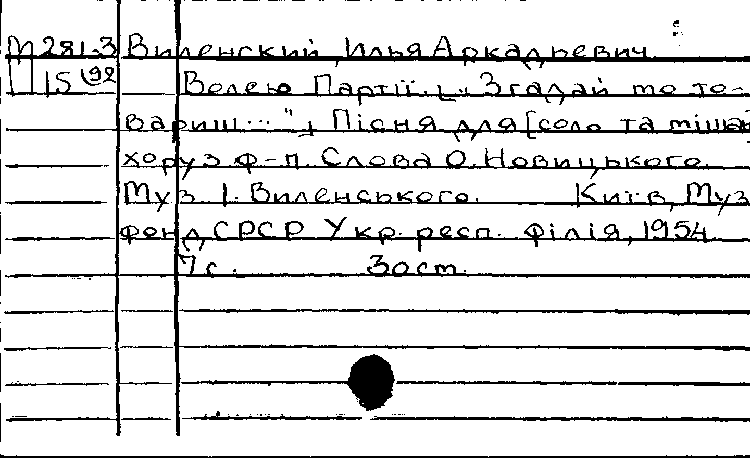 М 281-3 Виленский, Илья Аркадьевич
15 (92 Волею Партії. [„Згадай то то-
вариш..."] Пісня для [соло та мішан
хору з ф-п. Слова О. Новицького.
Муз І. Виленського. Київ, Муз
фонд СРСР Укр. респ. філія, 1954
7 с. 30 cm.